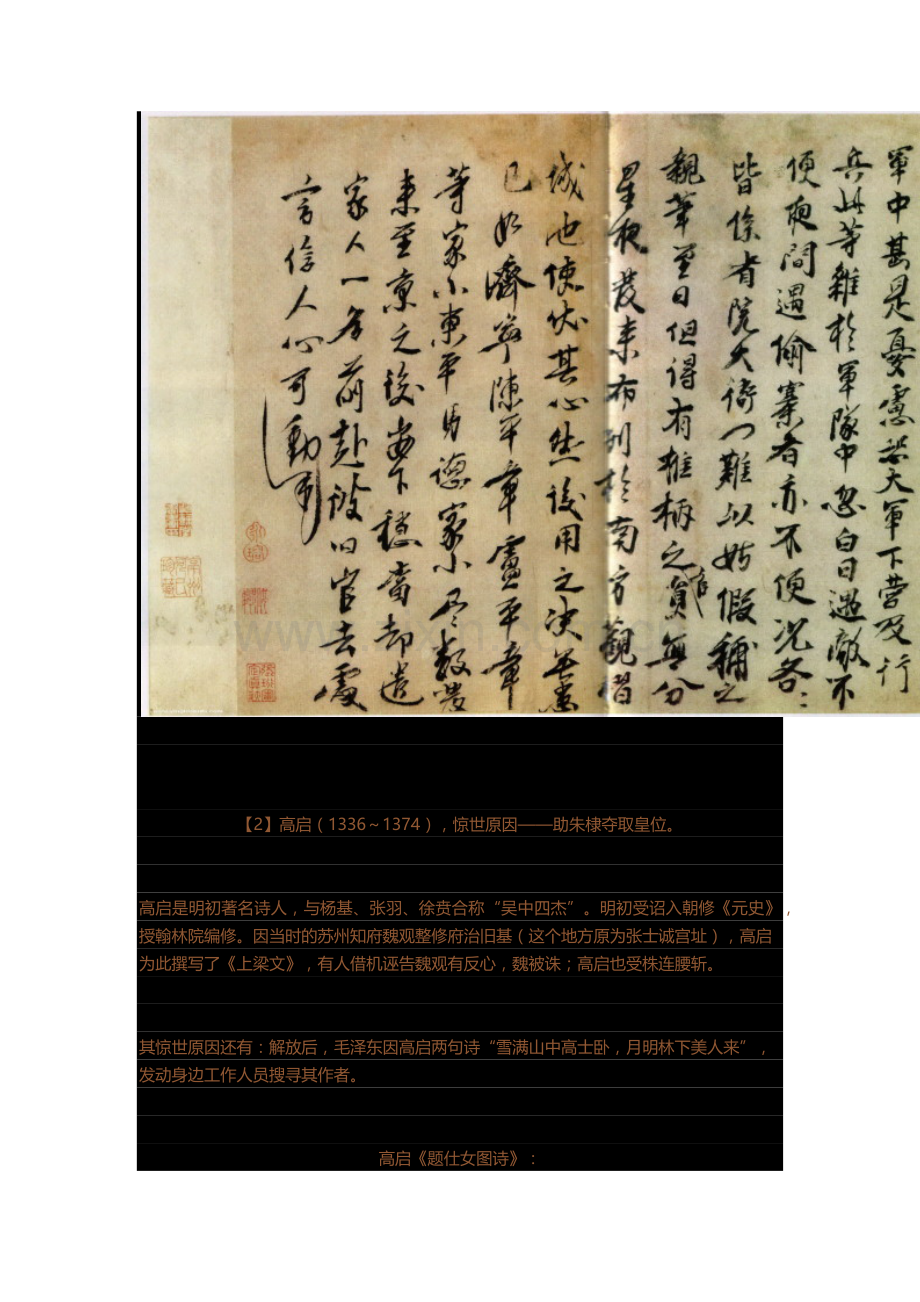 軍中甚是憂慮恐大軍下营及行
兵此等雜於軍隊中忽白日遇敵不
便夜間遇偷寨者亦不便况各
皆係省院大衙门難以妨假稱之
觀筆至日但得有權柄之官員無分
星夜發来布列於南方觀借
城池使伏其心然後用之决無患
已如濟寧陳平章盧平章
等家小東平馬德家小尽数發
来至京之後安下穩當却遣
家人一名前赴彼旧官去處
言信人心可動
【2】高启（1336～1374），惊世原因——助朱棣夺取皇位。
高启是明初著名诗人，与杨基、张羽、徐贲合称“吴中四杰”。明初受诏入朝修《元史》，
授翰林院编修。因当时的苏州知府魏观整修府治旧基（这个地方原为张士诚宫址），高启
为此撰写了《上梁文》，有人借机诬告魏观有反心，魏被诛；高启也受株连腰斩。
其惊世原因还有：解放后，毛泽东因高启两句诗“雪满山中高士卧，月明林下美人来”，
发动身边工作人员搜寻其作者。
高启《题仕女图诗》：